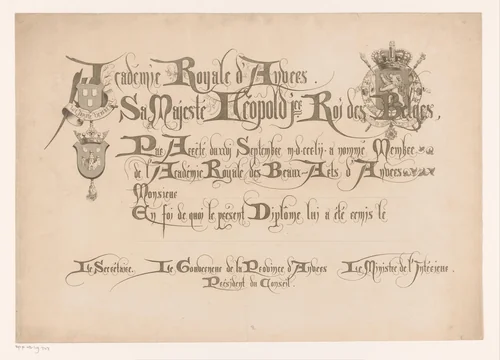 Academie Royale d'Anvers.
Sa Majesté Léopold 1er Roi des Belges,
Par Arrêté du xvij Septembre m·d·ccc·lij· a nommé Membre
de l'Académie Royale des Beaux-Arts d'Anvers
Monsieur
En foi de quoi le présent Diplôme lui a été remis le
Le Secrétaire. Le Gouverneur de la Province d'Anvers Le Ministre de l'Intérieur.
Président du Conseil.